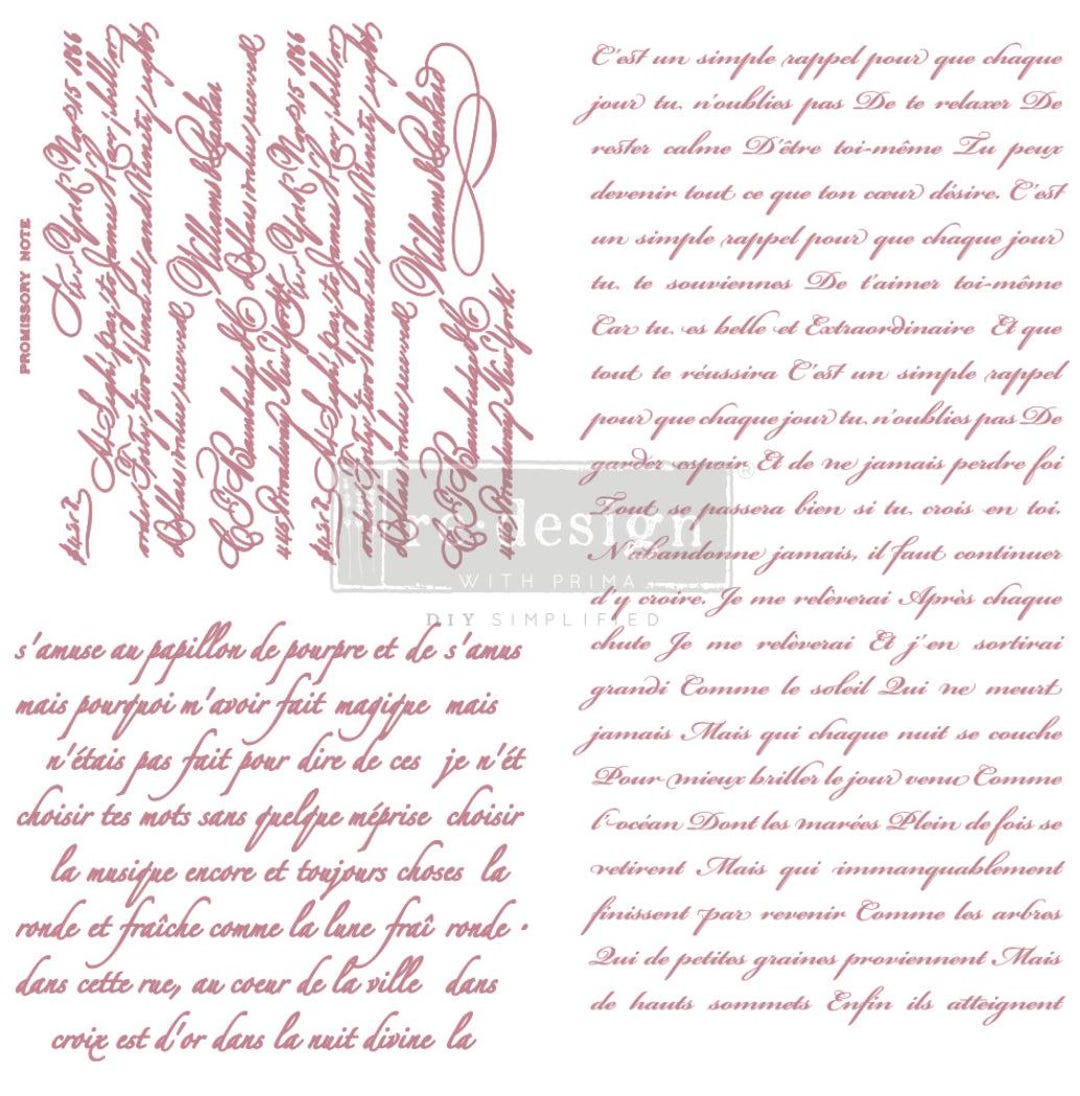 PROMISSORY NOTE
New York Nov 15 1866
James
and Ninety eight
Dollars value received
William
Broadway New York
New York Nov 15 1866
James
and Ninety eight
Dollars value received
William
Broadway New York.
C'est un simple rappel pour que chaque
jour tu n'oublies pas De te relaxer De
rester calme D'être toi-même Tu peux
devenir tout ce que ton cœur désire. C'est
un simple rappel pour que chaque jour
tu te souviennes De t'aimer toi-même
Car tu es belle et Extraordinaire Et que
tout te réussira C'est un simple rappel
pour que chaque jour tu n'oublies pas De
garder espoir Et de ne jamais perdre foi
Tout se passera bien si tu crois en toi.
N'abandonne jamais, il faut continuer
d'y croire. Je me relèverai Après chaque
chute Je me relèverai Et j'en sortirai
grandi Comme le soleil Qui ne meurt
jamais Mais qui chaque nuit se couche
Pour mieux briller le jour venu Comme
l'océan Dont les marées Plein de fois se
retirent Mais qui immanquablement
finissent par revenir Comme les arbres
Qui de petites graines proviennent Mais
de hauts sommets Enfin ils atteignent
re·design®
WITH PRIMA
DIY SIMPLIFIED
s'amuse au papillon de pourpre et de s'amus
mais pourquoi m'avoir fait magique mais
n'étais pas fait pour dire de ces je n'ét
choisir tes mots sans quelque méprise choisir
la musique encore et toujours choses la
ronde et fraîche comme la lune fraî ronde ·
dans cette rue, au coeur de la ville dans
croix est d'or dans la nuit divine la